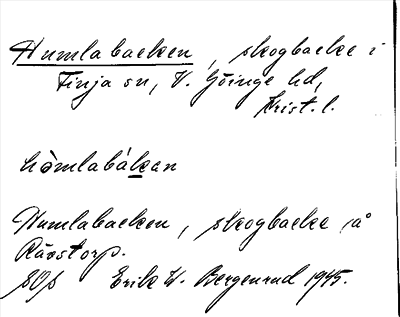 Humlabacken, skogbacke i
Finja sn, V. Göinge hd,
Krist. l.
hòmlabákan
Humlabacken, skogbacke på
Råostorp.
Erik W. Bergenrud 1945.